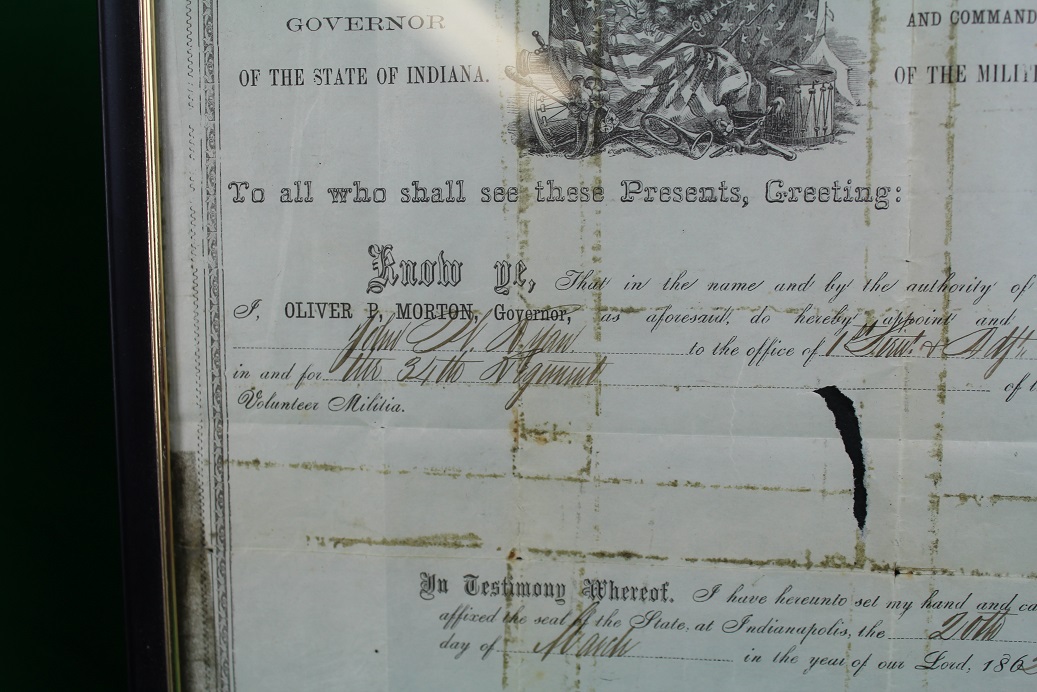 GOVERNOR
AND COMMAND
OF THE STATE OF INDIANA.
OF THE MILIT
To all who shall see these Presents, Greeting:
Know ye, That in the name and by the authority of
I, OLIVER P. MORTON, Governor, as aforesaid, do hereby appoint and
John to the office of 1st Lieut. & Adjt
in and for the 34th Regiment of t
Volunteer Militia.
In Testimony Whereof. I have hereunto set my hand and ca
affixed the seal of the State, at Indianapolis, the 20th
day of March in the year of our Lord, 186